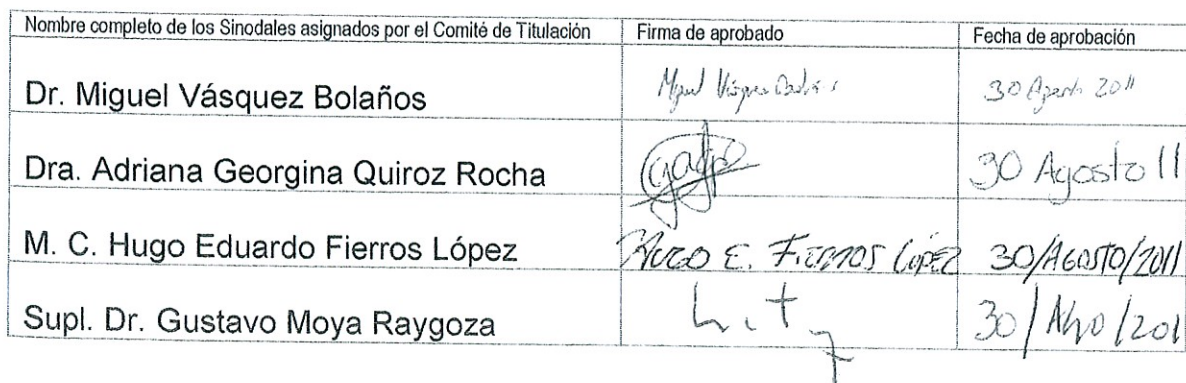 Nombre completo de los Sinodales asignados por el Comité de Titulación Firma de aprobado Fecha de aprobación
Dr. Miguel Vásquez Bolaños Miguel Vásquez Bolaños 30 Agosto 2011
Dra. Adriana Georgina Quiroz Rocha 30 Agosto 11
M. C. Hugo Eduardo Fierros López Hugo E. Fierros López 30/AGOSTO/2011
Supl. Dr. Gustavo Moya Raygoza 30/ /201